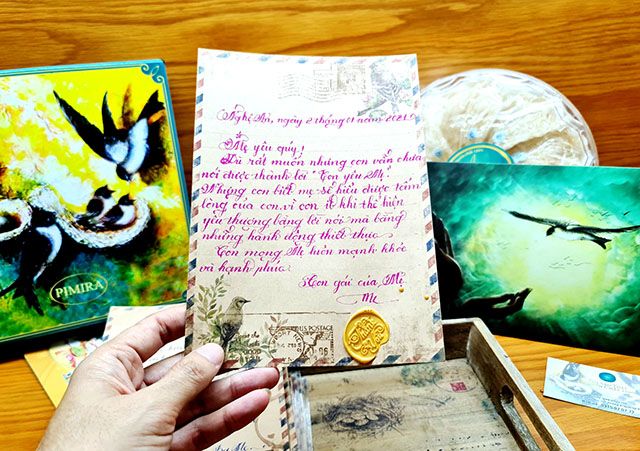 Nghệ An, ngày 2 tháng 01 năm 2021
Mẹ yêu quý!
Dù rất muốn nhưng con vẫn chưa
nói được thành lời "Con yêu Mẹ".
Nhưng con biết mẹ sẽ hiểu được tấm
lòng của con vì con ít khi thể hiện
yêu thương bằng lời nói mà bằng
những hành động thiết thực.
Con mong Mẹ luôn mạnh khỏe
và hạnh phúc.
Con gái của Mẹ
PIMIRA